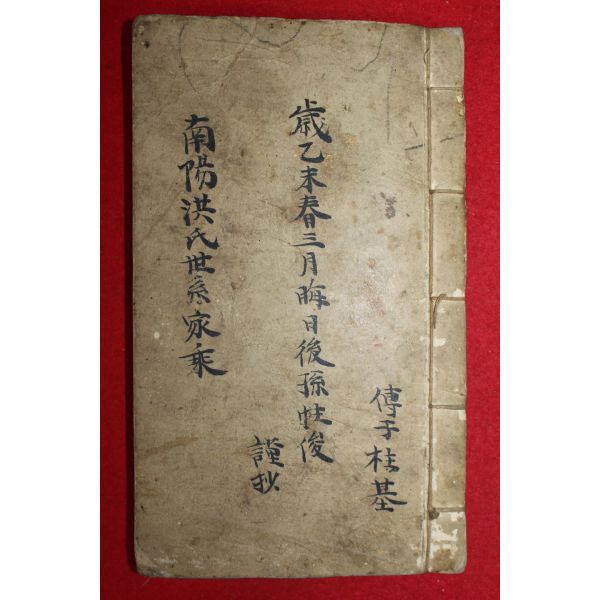 傳于柱基
歲乙未春三月晦日後孫性俊
謹抄
南陽洪氏世系家乘